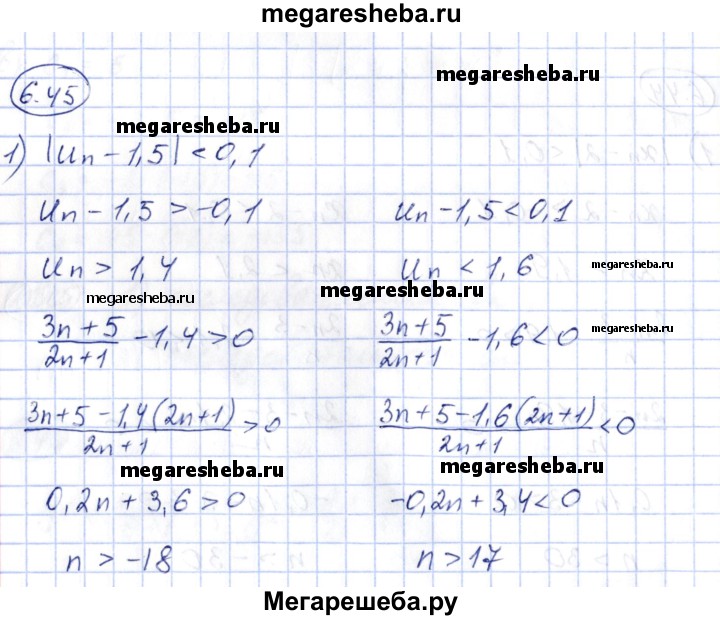 megaresheba.ru
megaresheba.ru
6.45
megaresheba.ru
1) |Un - 1,5| < 0,1
Un - 1,5 > -0,1 Un - 1,5 < 0,1
Un > 1,4 Un < 1,6 megaresheba.ru
megaresheba.ru megaresheba.ru
(3n + 5)/(2n + 1) - 1,4 > 0 (3n + 5)/(2n + 1) - 1,6 < 0 megaresheba.ru
(3n + 5 - 1,4(2n + 1))/(2n + 1) > 0 (3n + 5 - 1,6(2n + 1))/(2n + 1) < 0
megaresheba.ru megaresheba.ru
0,2n + 3,6 > 0 -0,2n + 3,4 < 0
n > -18 n > 17
Мегарешеба.ру